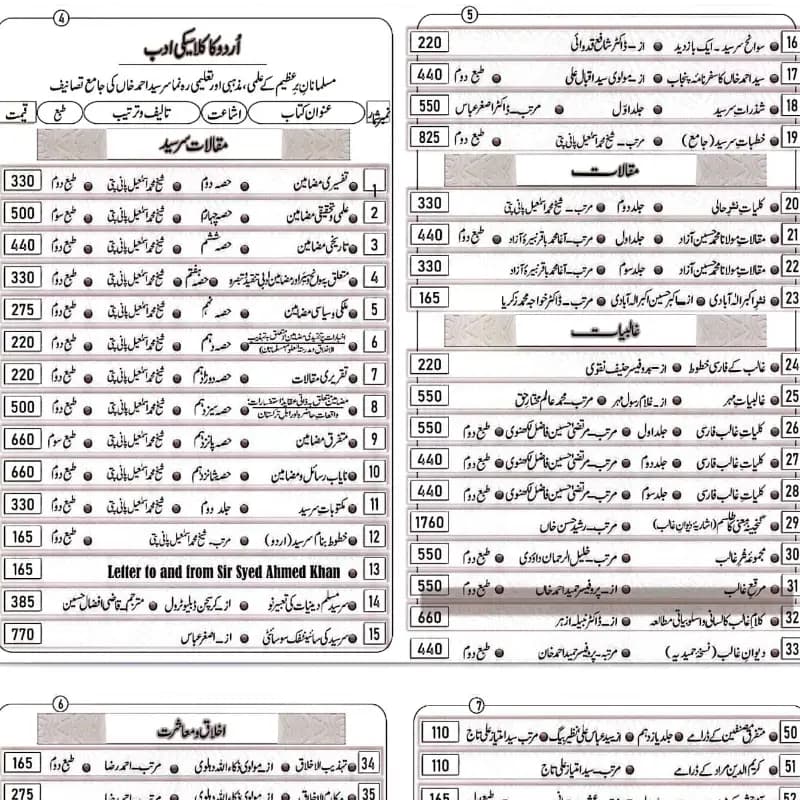 4
اُردو کا کلاسیکی ادب
مسلمانانِ برِعظیم کے علمی، مذہبی اور تعلیمی رہ نما سرسید احمد خاں کی جامع تصانیف
نمبر شمار عنوان کتاب اشاعت تالیف و ترتیب طبع قیمت
مقالات سرسید
1 تفسیری مضامین حصہ دوم شیخ محمد اسمٰعیل پانی پتی طبع دوم 330
2 علمی و تحقیقی مضامین حصہ چہارم شیخ محمد اسمٰعیل پانی پتی طبع سوم 500
3 تاریخی مضامین حصہ ششم شیخ محمد اسمٰعیل پانی پتی طبع دوم 440
4 متعلق بہ سوانح و سیر اور مضامین ادبی تنقید تبصرہ حصہ ہفتم شیخ محمد اسمٰعیل پانی پتی طبع دوم 330
5 ملکی و سیاسی مضامین حصہ نہم شیخ محمد اسمٰعیل پانی پتی طبع دوم 275
6 حصہ دہم شیخ محمد اسمٰعیل پانی پتی طبع دوم 220
7 تقریری مقالات حصہ دوازدہم شیخ محمد اسمٰعیل پانی پتی طبع دوم 220
8 حصہ سیزدہم شیخ محمد اسمٰعیل پانی پتی طبع دوم 500
9 متفرق مضامین حصہ پانزدہم شیخ محمد اسمٰعیل پانی پتی طبع سوم 660
10 نایاب رسائل و مضامین حصہ شانزدہم شیخ محمد اسمٰعیل پانی پتی طبع دوم 660
11 مکتوبات سرسید جلد دوم شیخ محمد اسمٰعیل پانی پتی طبع دوم 330
12 خطوط بنام سرسید (اردو) مرتب۔ شیخ محمد اسمٰعیل پانی پتی طبع دوم 165
13 Letter to and from Sir Syed Ahmed Khan 165
14 سرسید مسلم دینیات کی تعبیرِ نو از کرسچن ڈبلیو ٹرول مترجم۔ قاضی افضال حسین 385
15 سرسید کی سائینٹفک سوسائٹی از۔ اصغر عباس 770
5
16 سوانح سرسید۔ ایک بازدید از۔ ڈاکٹر شافع قدوائی 220
17 سید احمد خاں کا سفرنامہ پنجاب از۔ مولوی سید اقبال علی طبع دوم 440
18 شذراتِ سرسید جلد اوّل مرتب۔ ڈاکٹر اصغر عباس 550
19 خطباتِ سرسید (جامع) مرتب۔ شیخ محمد اسمٰعیل پانی پتی طبع دوم 825
مقالات
20 کلیاتِ نثرِ حالی جلد دوم مرتب۔ شیخ محمد اسمٰعیل پانی پتی 330
21 مقالات مولانا محمد حسین آزاد جلد اول مرتب۔ آغا محمد باقر نبیرۂ آزاد طبع دوم 440
22 مقالات مولانا محمد حسین آزاد جلد سوم مرتب۔ آغا محمد باقر نبیرۂ آزاد 330
23 نثر اکبر الٰہ آبادی از۔ اکبر حسین اکبر الہ آبادی مرتب۔ ڈاکٹر خواجہ محمد زکریا 165
غالبیات
24 غالب کے فارسی خطوط از۔ پروفیسر حنیف نقوی 220
25 غالبیات مہر از۔ غلام رسول مہر مرتب۔ محمد عالم مختار حق 550
26 کلیاتِ غالب فارسی جلد اول مرتب۔ مرتضیٰ حسین فاضل لکھنوی طبع دوم 550
27 کلیاتِ غالب فارسی جلد دوم مرتب۔ مرتضیٰ حسین فاضل لکھنوی طبع دوم 440
28 کلیاتِ غالب فارسی جلد سوم مرتب۔ مرتضیٰ حسین فاضل لکھنوی طبع دوم 440
29 گنجینۂ معنی کا طلسم (اشاریۂ دیوانِ غالب) مرتب۔ رشید حسن خاں 1760
30 مجموعہ نثرِ غالب مرتب۔ خلیل الرحمان داؤدی طبع دوم 550
31 مرقعِ غالب از۔ پروفیسر حمید احمد خاں طبع دوم 550
32 کلامِ غالب کا لسانی و اسلوبیاتی مطالعہ از۔ ڈاکٹر نبیلہ ازہر 660
33 دیوانِ غالب (نسخۂ حمیدیہ) مرتبہ۔ پروفیسر حمید احمد خاں طبع دوم 440
6
اخلاق و معاشرت
34 تہذیب الاخلاق از۔ مولوی ذکاء اللہ دہلوی مرتب۔ احمد رضا طبع دوم 165
35 275
7
50 متفرق مصنفین کے ڈرامے جلد یازدہم از۔ سید عباس علی نظیر بیگ مرتب سید امتیاز علی تاج 110
51 کریم الدین مراد کے ڈرامے مرتب۔ سید امتیاز علی تاج 110
52 165